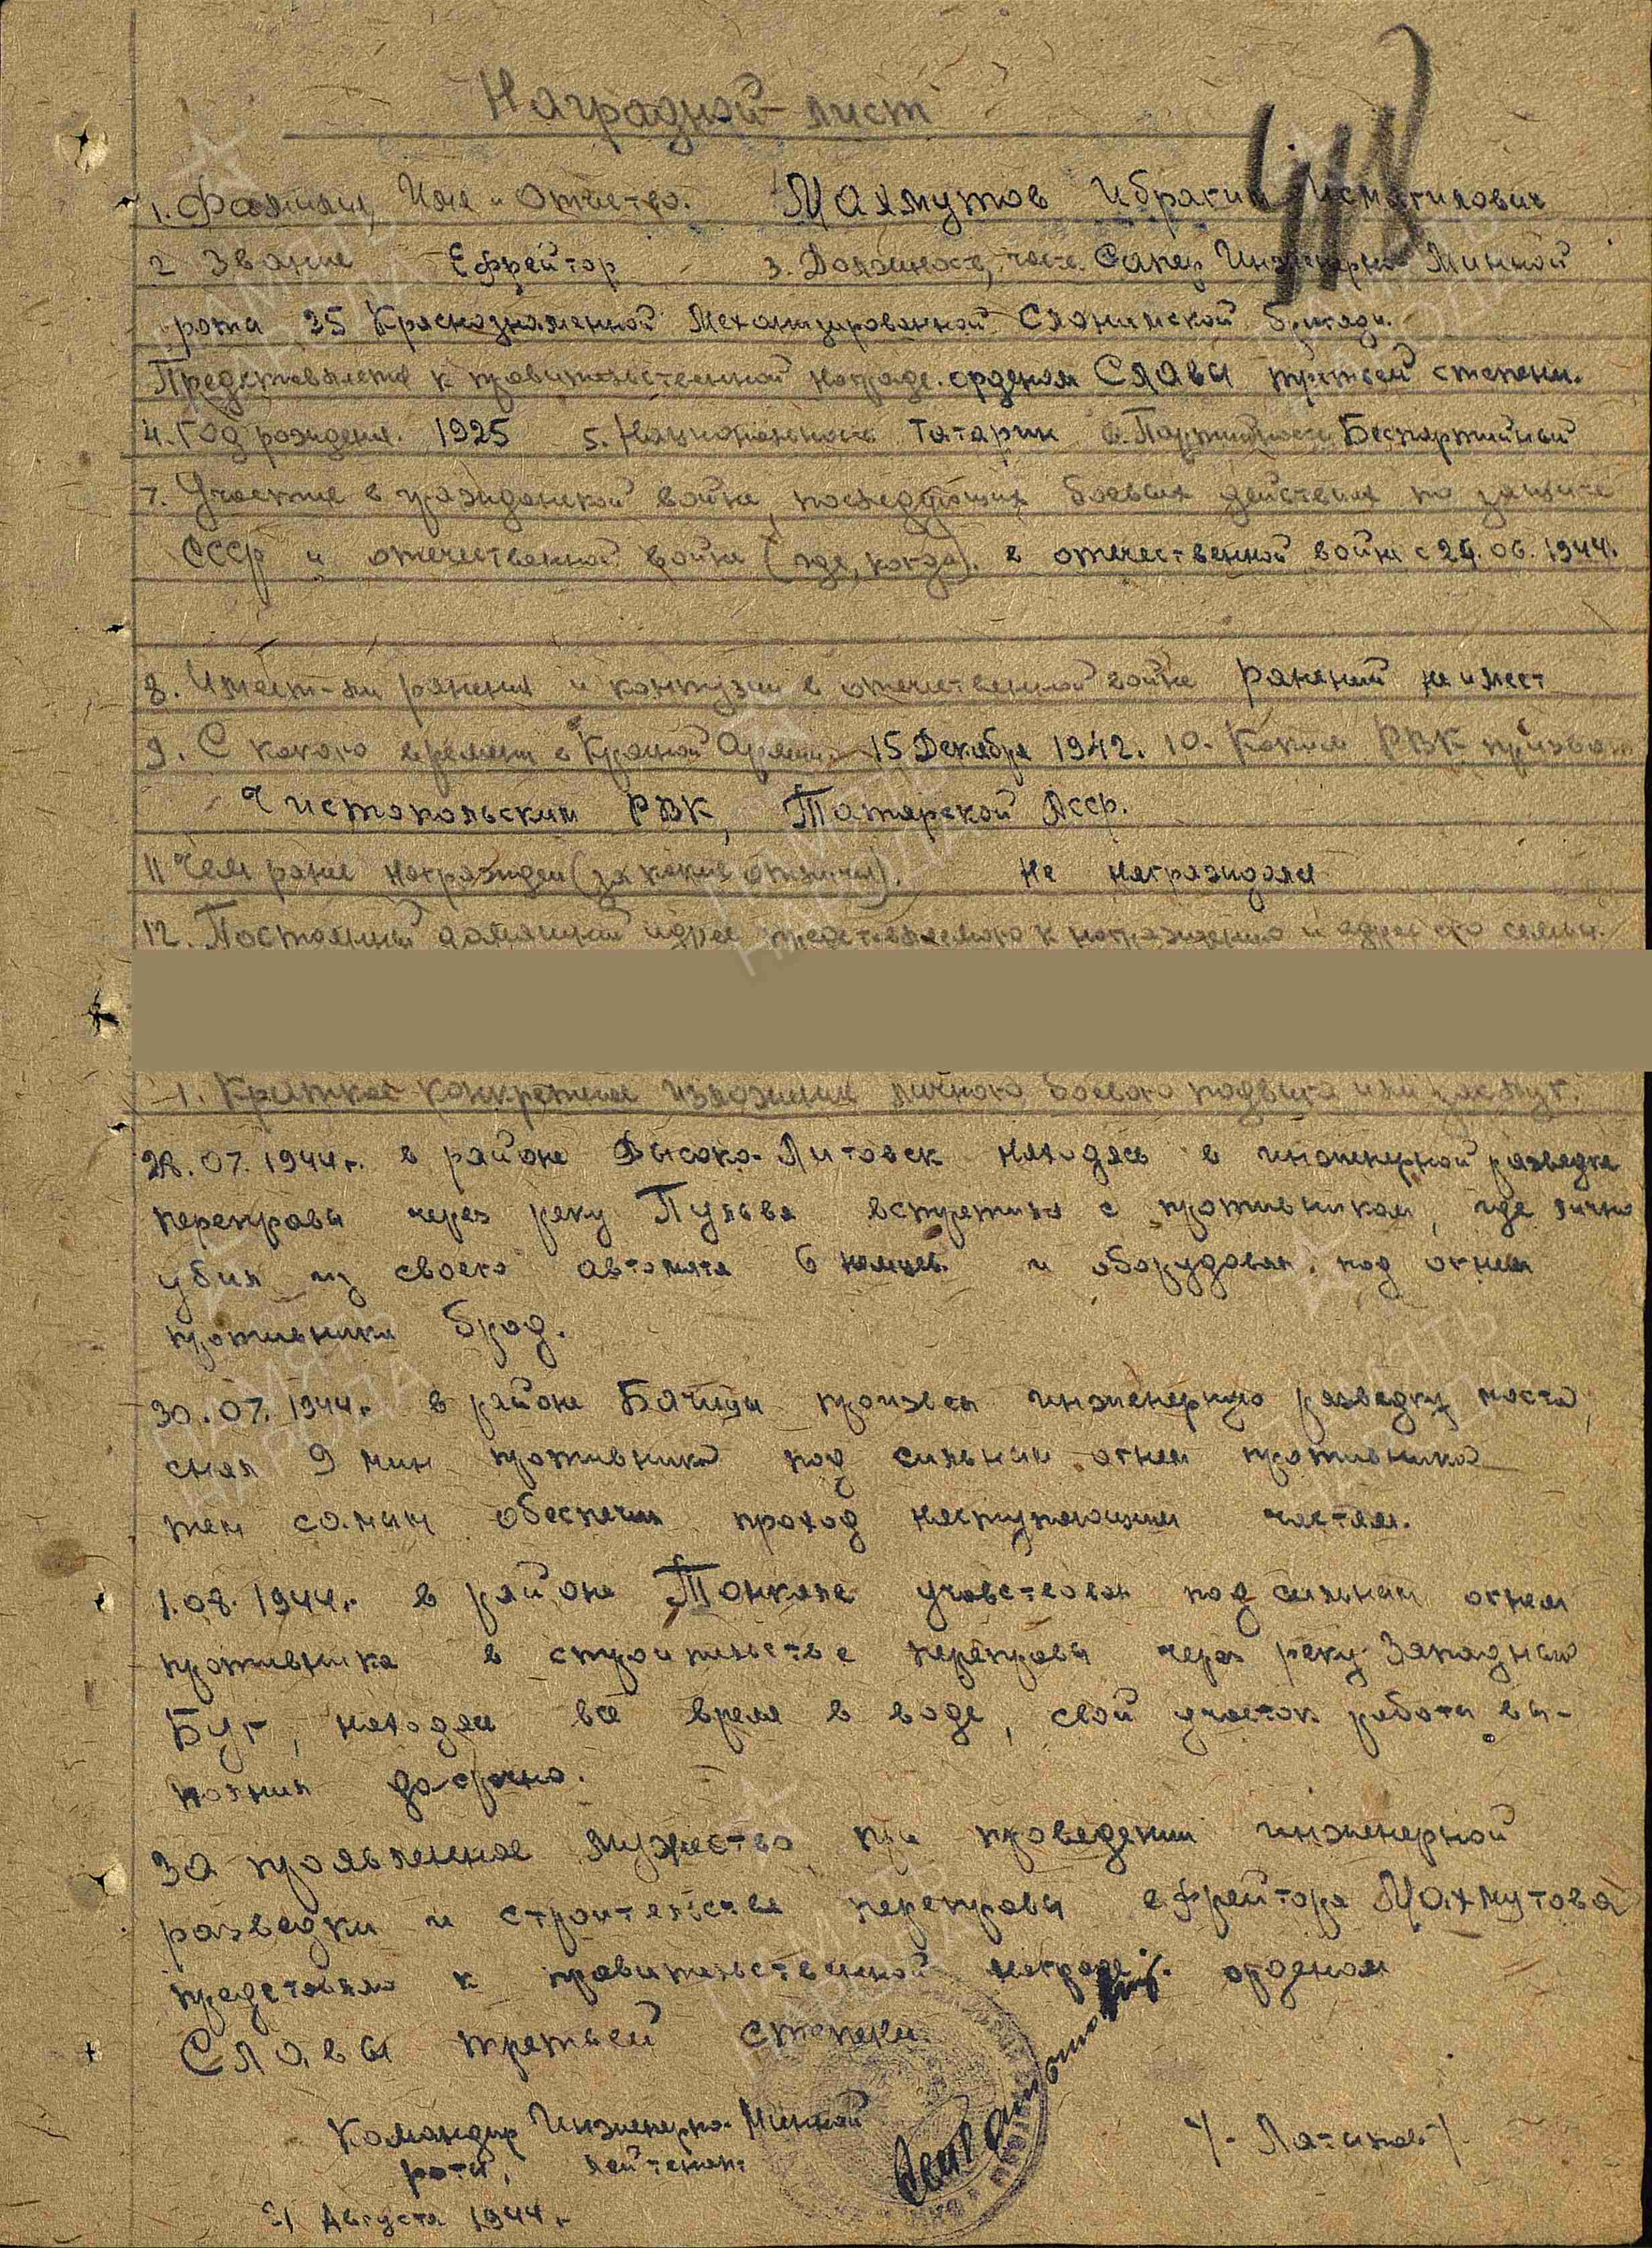 Наградной лист
418
1. Фамилия, Имя и Отчество. Махмутов Ибрагим Исмагилович
2 Звание Ефрейтор 3. Должность, часть. Сапер Инженерно Минной
роты 25 Краснознаменной Механизированной Слонимской бригады.
Представляется к правительственной награде. орденом Славы третьей степени.
4. Год рождения. 1925 5. Национальность Татарин 6. Партийность Беспартийный
7. Участие в гражданской войне, последующих боевых действиях по защите
СССР и отечественной войне (где, когда). в отечественной войне с 24.06.1944.
8. Имеет-ли ранения и контузии в отечественной войне ранений не имеет
9. С какого времени в Красной Армии 15 Декабря 1942. 10. Каким РВК призван
Чистопольским РВК, Татарской Асср.
11 Чем ранее награжден (за какие отличия). не награждался
12. Постоянный домашний адрес представляемого к награждению и адрес его семьи.
1. Краткое конкретное изложение личного боевого подвига или заслуг.
28.07.1944г. в районе Высоко-Литовск находясь в инженерной разведке
переправы через реку Пульва встретился с противником, где лично
убил из своего автомата 6 немцев и оборудовал под огнем
противника брод.
30.07.1944г. в районе Бачицы произвел инженерную разведку моста,
снял 9 мин противника под сильным огнем противника
тем самым обеспечил проход наступающим частям.
1.08.1944г. в районе Тонкеле учавствовал под сильным огнем
противника в строительстве переправы через реку Западный
Буг, находясь всё время в воде, свой участок работы вы-
полнил досрочно.
За проявленное мужество при проведении инженерной
разведки и строительстве переправы ефрейтора Махмутова
представляю к правительственной награде орденом
Славы третьей степени.
Командир Инженерно-Минной
роты, лейтенант /-Латынов-/
21 Августа 1944г.